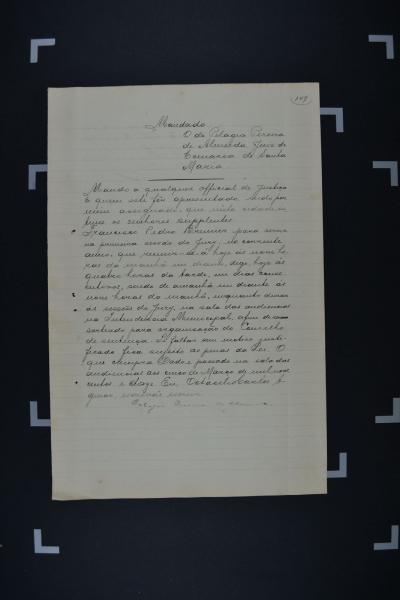 149
Mandado
O dr Pelagio Pereira
de Almeida, Juiz de
Comarca de Santa
Maria
Mando a qualquer official de justiça
a quem este fôr apresentado, indo por
mim assignado, que intime
os senhores supplentes
Francisco Pedro para servir
na primeira sessão do Jury, no corrente
anno, que reunir-se-á hoje ás nove ho
ras da manhã em diante, digo, hoje ás
quatro horas da tarde, em dias conse
cutivos, sendo de amanhã em diante ás
nove horas da manhã, emquanto durar
as sessões do Jury, na sala das audiencias
na Intendencia Municipal, afim de
sorteado para organisação do Conselho
de sentença. Si faltar sem motivo justi
ficado fica sujeito as penas da Lei. O
que cumpra. Dado e passado na sala das
audiencias aos cinco de Março de mil nove
centos e doze. Eu,
escrivão escrevi.